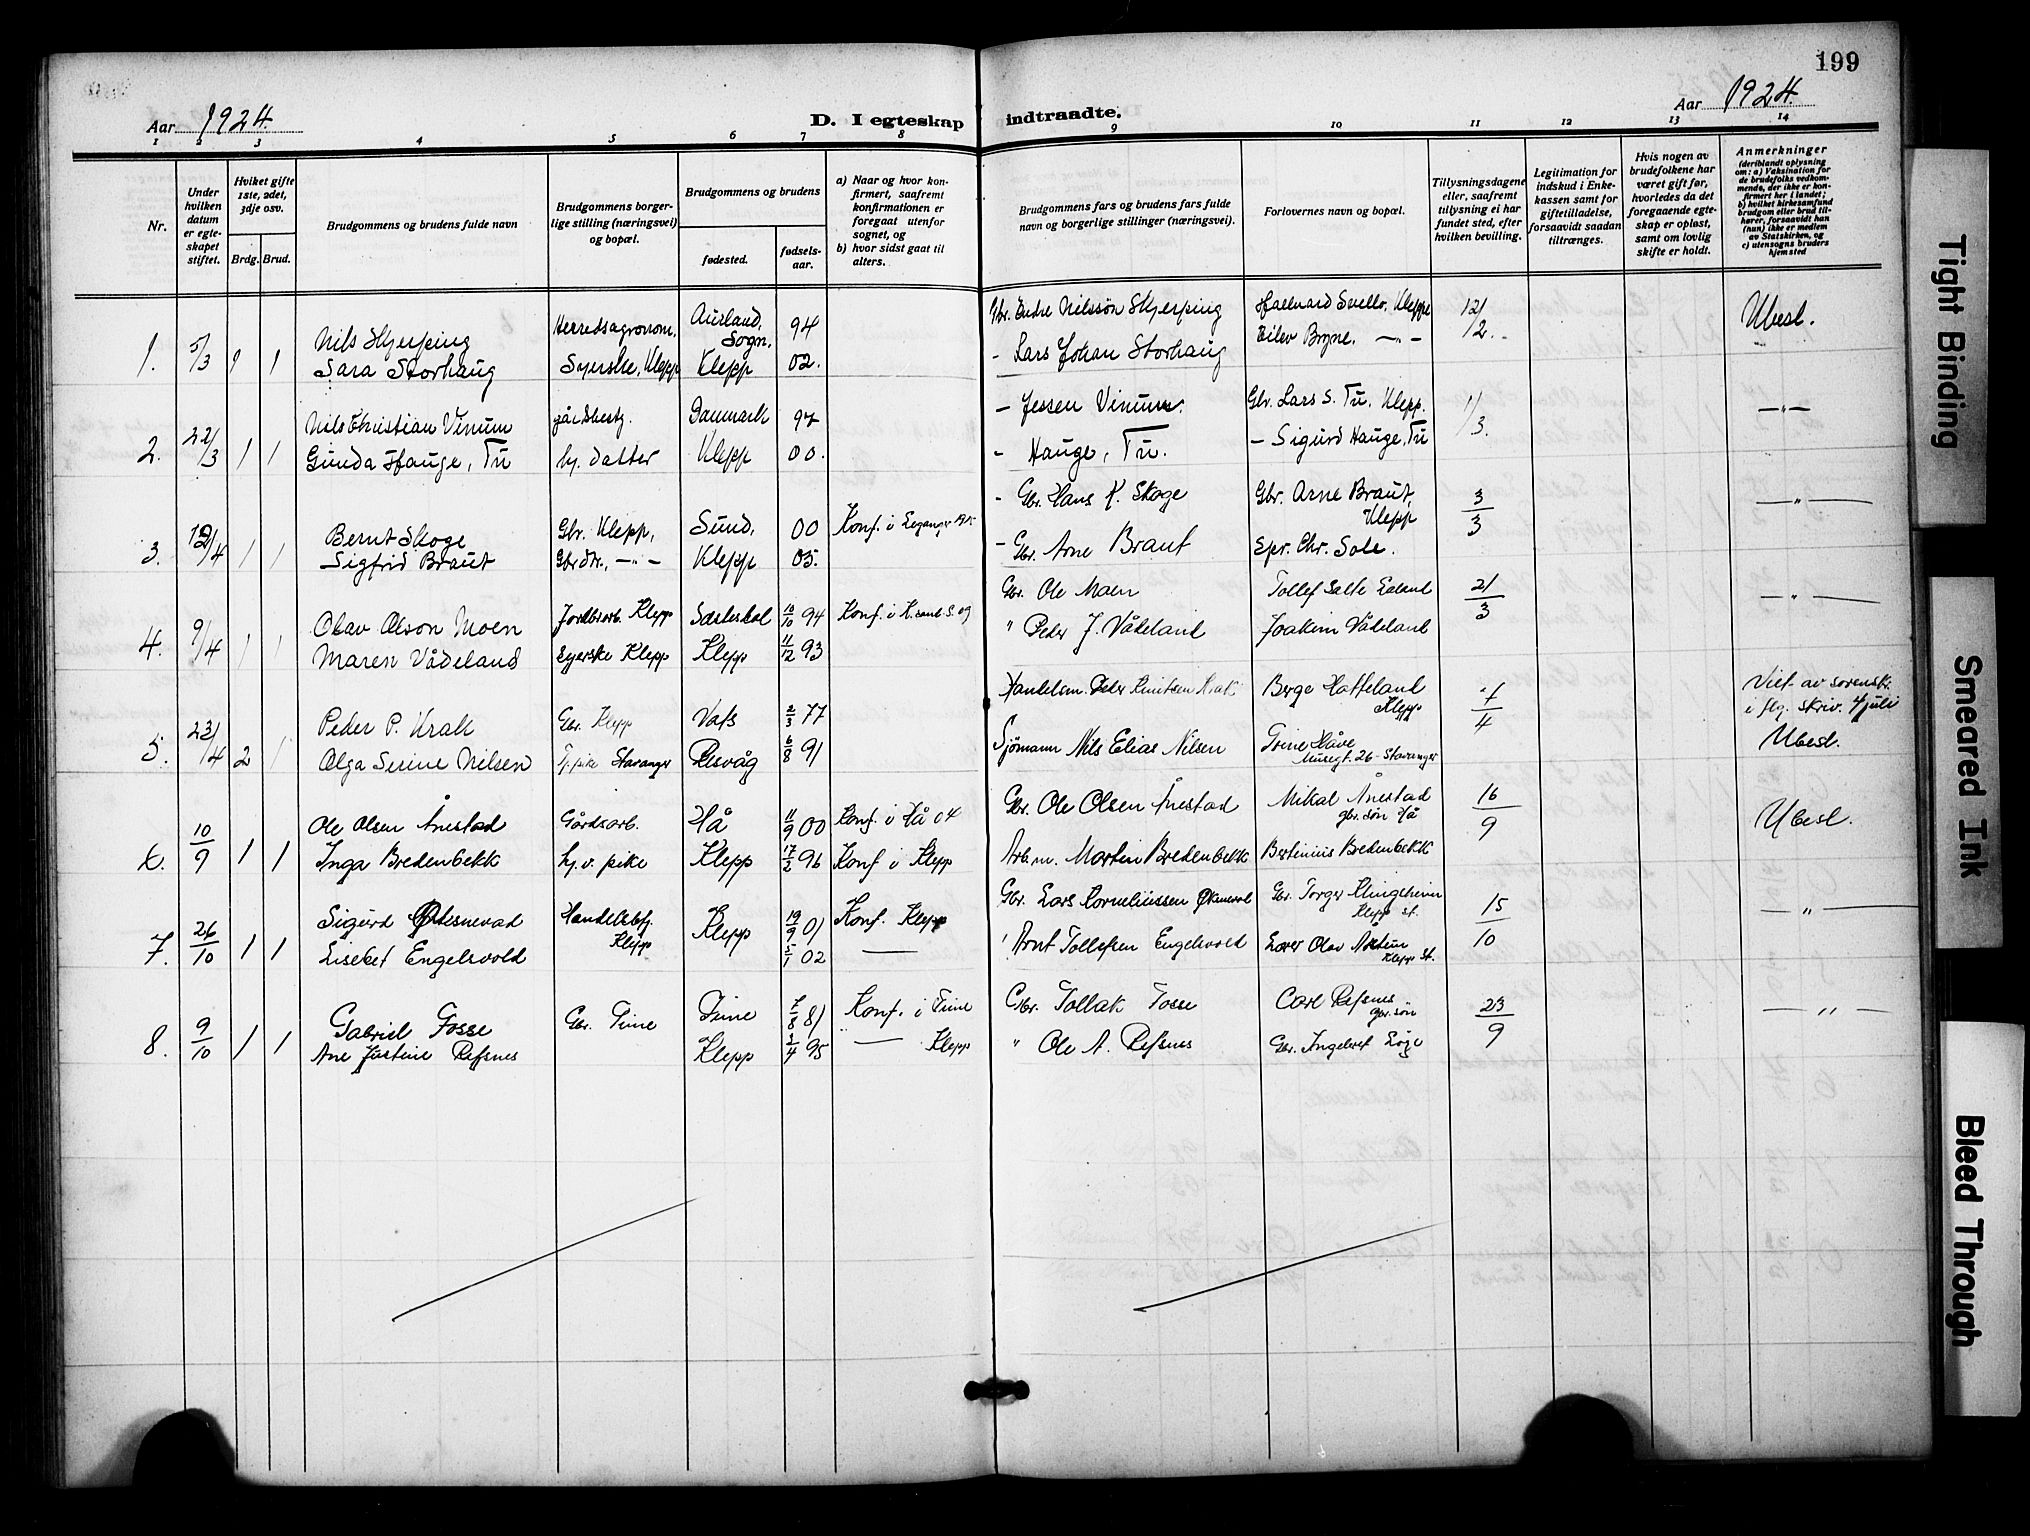 199
Aar 1924.
D. I egteskap indtraadte.
Aar 1924.
1 2 3 4 5 6 7 8 9 10 11 12 13 14
Nr.
Under hvilken datum er egteskapet stiftet.
Hviket gifte 1ste, 2det, 3dje osv.
Brdg. Brud.
Brudgommens og brudens fulde navn
Brudgommens borgerlige stilling (næringsvei) og bopæl.
Brudgommens og brudens
fødested.
fødselsaar.
a) Naar og hvor konfirmert, saafremt konfirmationen er foregaat utenfor sognet, og
b) hvor sidst gaat til alters.
Brudgommens fars og brudens fars fulde navn og borgerlige stillinger (næringsvei).
Forlovernes navn og bopæl.
Tillysningsdagene eller, saafremt tillysning ei har fundet sted, efter hvilken bevilling.
Legitimation for indskud i Enkekassen samt for giftetilladelse, forsaavidt saadan tiltrænges.
Hvis nogen av brudefolkene har været gift før, hvorledes da det foregaaende egteskap er opløst, samt om lovlig skifte er holdt.
Anmerkninger
(deriblandt oplysning om: a) Vaksination for de brudefolks vedkommende, der ikke er konfirmert her i landet; b) hvilket kirkesamfund brudgom eller brud tilhører, forsaavidt han (nun) ikke er medlem av Statskirken, og c) utensogns bruders hjemsted
1. 5/3 1 1 Nils Skjerping Herredsagronom, Aurland, Sogn. 94 Gbr. Endre Nilssøn Skjerping Hallvard Svello, Kleppe 12/2. Ubesl.
Sara Storhaug Syerske, Klepp Klepp 02. - Lars Johan Storhaug Eilev Bryne. —"—
2. 22/3 1 1 Nils Christian Vinum Danmark 97 - Jessen Vinum. Gbr. Lars S. Tu, Klepp. 1/3. —"—
Gunda Hauge, Tu hj. datter Klepp 00. - Hauge, Tu. - Sigurd Hauge, Tu
3. 12/4 1 1 Bernt Skoge Gbr. Klepp, Sund, 00 Konf. i - Gbr. Hans K. Skoge Gbr. Arne Braut, Klepp 3/3 —"—
Sigfrid Braut Gbrdtr., —"— Klepp 05. - Gbr. Arne Braut Spr. Chr. Sole.
4. 9/4 1 1 Olav Olson Moen Jordbrarb. Klepp Sætesdal 10/10 94 Konf. i Kr.sand S. 09 Gbr. Ole Moen Tollef Salte 21/3 —"—
Maren Vådeland Syerske Klepp Klepp 11/12 93 " Peder J. Vådeland Joakim Vådeland
5. 23/4 2 1 Peder P. Krak Gbr. Klepp Vats 2/3 77 Handelsm. Peder Knutsen Krak Berge Hatteland Klepp 1/4 Viet av sorenskr. i flg. skriv. 4 juli
Olga Serine Nilsen Tj.pike Stavanger Resvåg 6/8 91 Sjømann Nils Elias Nilsen Trine Håve Musegt. 26 - Stavanger Ubesl.
6. 10/9 1 1 Ole Olsen Ånestad Gårdsarb. Hå 11/9 00 Konf. i Hå 04 Gbr. Ole Olsen Ånestad Mikal Ånestad gbr. søn Hå 16/9 Ubesl.
Inga Bredenbekk hj.v. pike Klepp 17/2 96 Konf i Klepp Arb.m. Morten Bredenbekk Bertinius Bredenbekk
7. 26/10 1 1 Sigurd Øksnevad Handelsbestj. Klepp Klepp 19/9 01 Konf. Klepp Gbr. Lars Korneliussen Øksnevad Gbr. Torger Klingsheim Klepp st. 15/10 —"—
Lisebet Engelsvold 5/1 02 — Arnt Tollefsen Engelsvold Lærer Olav Klepp St.
8. 9/10 1 1 Gabriel Fosse Gbr. Time Time 7/8 81 Konf. i Time Gbr. Tollak Fosse Carl Refsnes gbr. søn 23/9 —"—
Ane Justine Refsnes Klepp 2/4 95 — Klepp " Ole A. Refsnes Gbr. Ingebret Løge
Tight Binding
Smeared Ink
Bleed Through